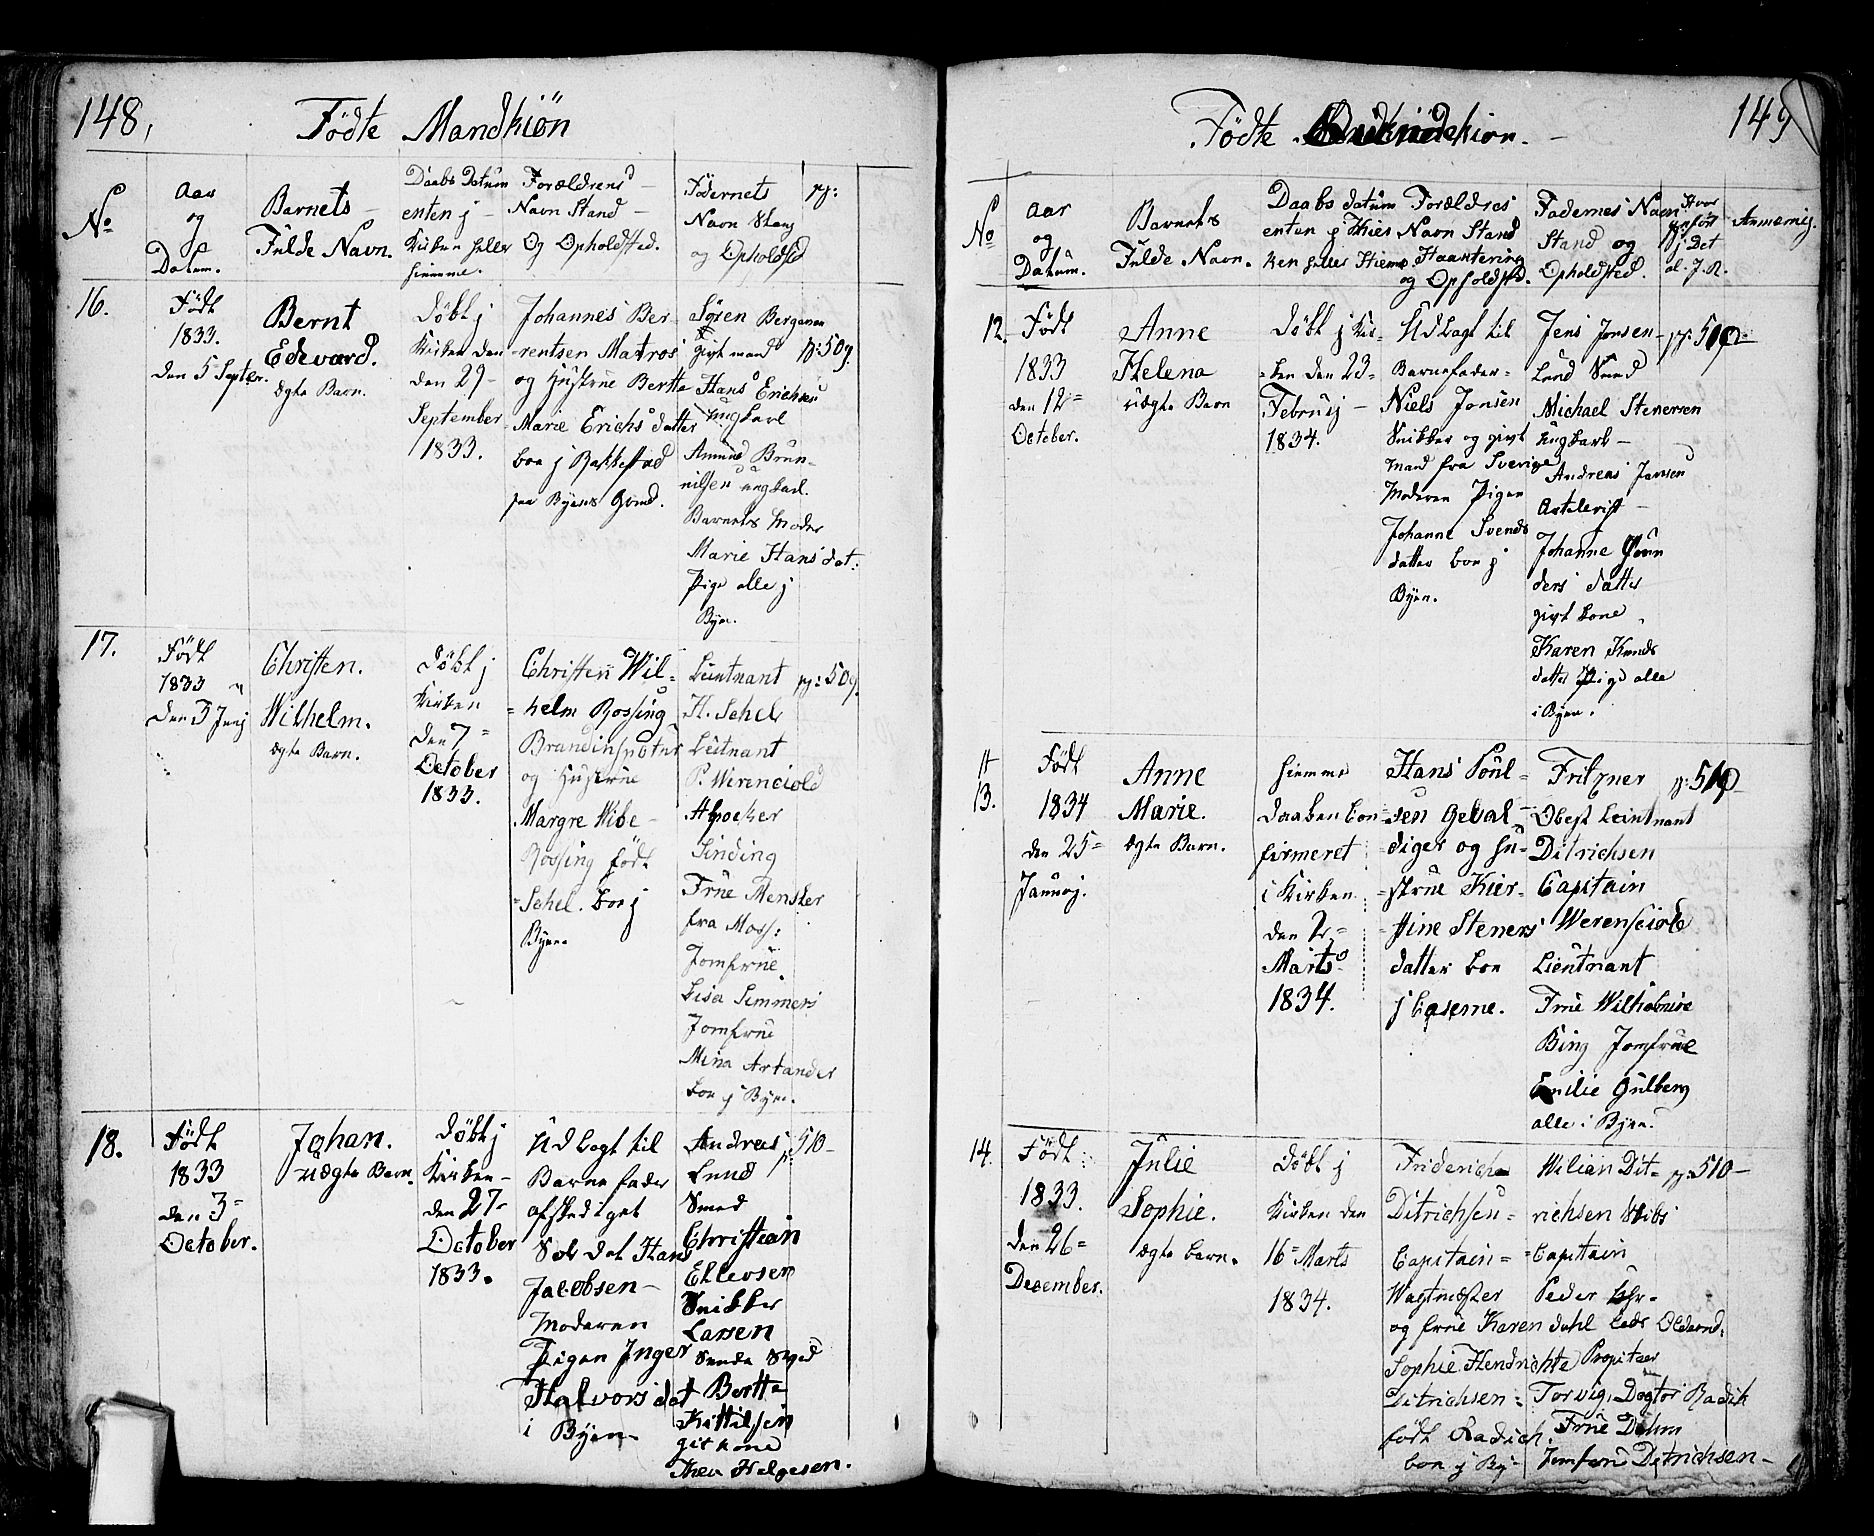 148,
Födte Mandkiön
No
Aar
og
Datum.
Barnets
Fulde Navn.
Daabs Datum
enten j
Kirken heller
hiemme.
Forældrens
Navn Stand
Og Opholdsted.
Födernets
Navn Stang
og Opholdsd
pg:
16.
Födt
1833.
den 5 Septer.
Bernt
Edevard.
ægte Barn.
Döbt j
Kirken den
den 29
September
1833.
Johannes Ber
rentsen Matros
og Hustrue Berthe
Marie Erichs datter
boe j Bakkestad
paa Byens Grund.
Sören Bergersen
givt mand
Hans Erichsen
ungkarl
Amund Brun
nilsen ungkarl.
Barnets Moder
Marie Hans dat:
Pige alle j
Byen.
pg:509.
17.
Födt
1833
den 3 Junij
Christen.
Wilhelm.
ægte Barn.
Döbt j
Kirken
den 7
October
1833.
Christen Wil=
helm Rossing
Brandinspctur
og Hustrue
Margre Wibe
Rossing födt
Schel. boe j
Byen.
Lieutnant
H. Schel
Leutnant
P. Wirenciold
Apoeker
Sinding
Frue Mensker
fra Moss:
Jomfrue
Lisa Simmers
Jomfrue
Mina Artander
boe j Byen.
pg:509.
18.
Födt
1833
den 3
October.
Johan.
uægte Barn.
Döbt j
Kirken
den 27
October
1833.
Udlagt til
Barnefader
afskediget
Soldat Hans
Jacobsen
Moderen
Pigen Inger
Halvors dat
i Byen
Andreas
Lund
Smed
Christian
Ellevsen
Snikker
Larsen
Bertte
Kittilsen
git kone
Thea Helgesen.
p: 510
149
Födte Qvindekiön.
No
Aar
og
Datum.
Barnets
Fulde Navn.
Daabs datum
enten j Kier
ken heller Hieme.
Forældres
Navn Stand
Haantering
og Opholdsted.
Fadernes Navn
Stand og
Opholdsted.
Hvor
j Det
al: J. R.
Anmærng.
12.
Födt
1833
den 12
October.
Anne
Helena
uægte Barn
Döbt j Kir
ken den 23
Februij
1834.
Udlagt til
Barnefader
Niels Jonsen
Snikker og givt
mand fra Sverige
Moderen Pigen
Johanne Svends
datter boe j
Byen.
Jens Jonsen
Lund Smed
Michael Stenersen
ungkarl
Andreas Jansen
Artelerist
Johanne Gun
ders datter
givt kone
Karen Knuds
datter Pige alle
i Byen.
pg: 510
13.
Födt
1834
den 25
Januarj.
Anne
Marie.
ægte Barn.
hiemme
daaben con
firmeret
i Kirken
den 2
Marts
1834.
Hans Poul
sen Geval
diger og Hu
strue Kier
stine Steners
datter boe
j Caserne.
Fritzner
Obest Leutnant
Ditrichsen
Capitain
Werenskiold
Lieutnant
Frue Wilhelmine
Bing Jomfrue
Emilie Gulberg
alle i Byen.
pg: 510
14.
Födt
1833.
den 26
December.
Julie
Sophie.
ægte barn.
Döbt j
Kirken den
16 Marts
1834.
Friderich
Ditrichsen
Capitain
Wagtmæster
og frue Karen
Sophie Hendrichte
Ditrichsen
födt Radich.
boe j By
Wilian Dit=
richsen Skibs
Capitain
Peder Chr
dahl
Propitær
Torvig, Dogtor Radik
Frue
Jomfrue Ditrichsen
pg: 510